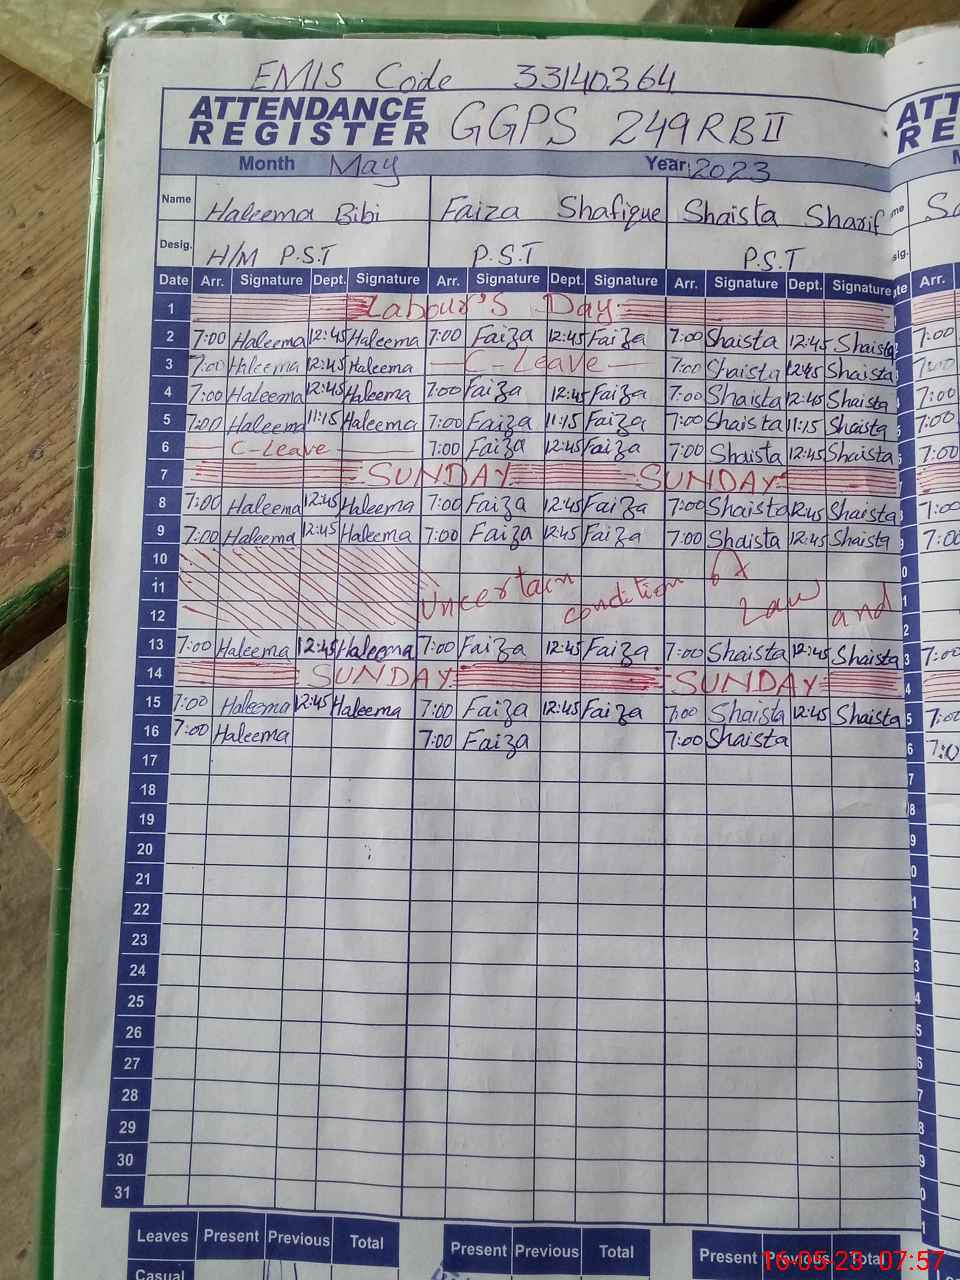 EMIS Code 33140364
ATTENDANCE REGISTER GGPS 249RB II
Month May Year 2023
Name Haleema Bibi Faiza Shafique Shaista Sharif
Desig. H/M P.S.T P.S.T P.S.T
Date Arr. Signature Dept. Signature Arr. Signature Dept. Signature Arr. Signature Dept. Signature Arr.
1 Labour's Day
2 7:00 Haleema 12:45 Haleema 7:00 Faiza 12:45 Faiza 7:00 Shaista 12:45 Shaista 7:00
3 7:00 Haleema 12:45 Haleema C-Leave 7:00 Shaista 12:45 Shaista 7:00
4 7:00 Haleema 12:45 Haleema 7:00 Faiza 12:45 Faiza 7:00 Shaista 12:45 Shaista 7:00
5 7:00 Haleema 11:15 Haleema 7:00 Faiza 11:15 Faiza 7:00 Shaista 11:15 Shaista 7:00
6 C-Leave 7:00 Faiza 12:45 Faiza 7:00 Shaista 12:45 Shaista 7:00
7 SUNDAY SUNDAY
8 7:00 Haleema 12:45 Haleema 7:00 Faiza 12:45 Faiza 7:00 Shaista 12:45 Shaista 7:00
9 7:00 Haleema 12:45 Haleema 7:00 Faiza 12:45 Faiza 7:00 Shaista 12:45 Shaista 7:00
10
11 Uncertain condition of Law and
12
13 7:00 Haleema 12:45 Haleema 7:00 Faiza 12:45 Faiza 7:00 Shaista 12:45 Shaista 7:00
14 SUNDAY SUNDAY
15 7:00 Haleema 12:45 Haleema 7:00 Faiza 12:45 Faiza 7:00 Shaista 12:45 Shaista 7:00
16 7:00 Haleema 7:00 Faiza 7:00 Shaista
17
18
19
20
21
22
23
24
25
26
27
28
29
30
31
Leaves Present Previous Total Present Previous Total Present Previous Total
Casual
16-05-23 07:57